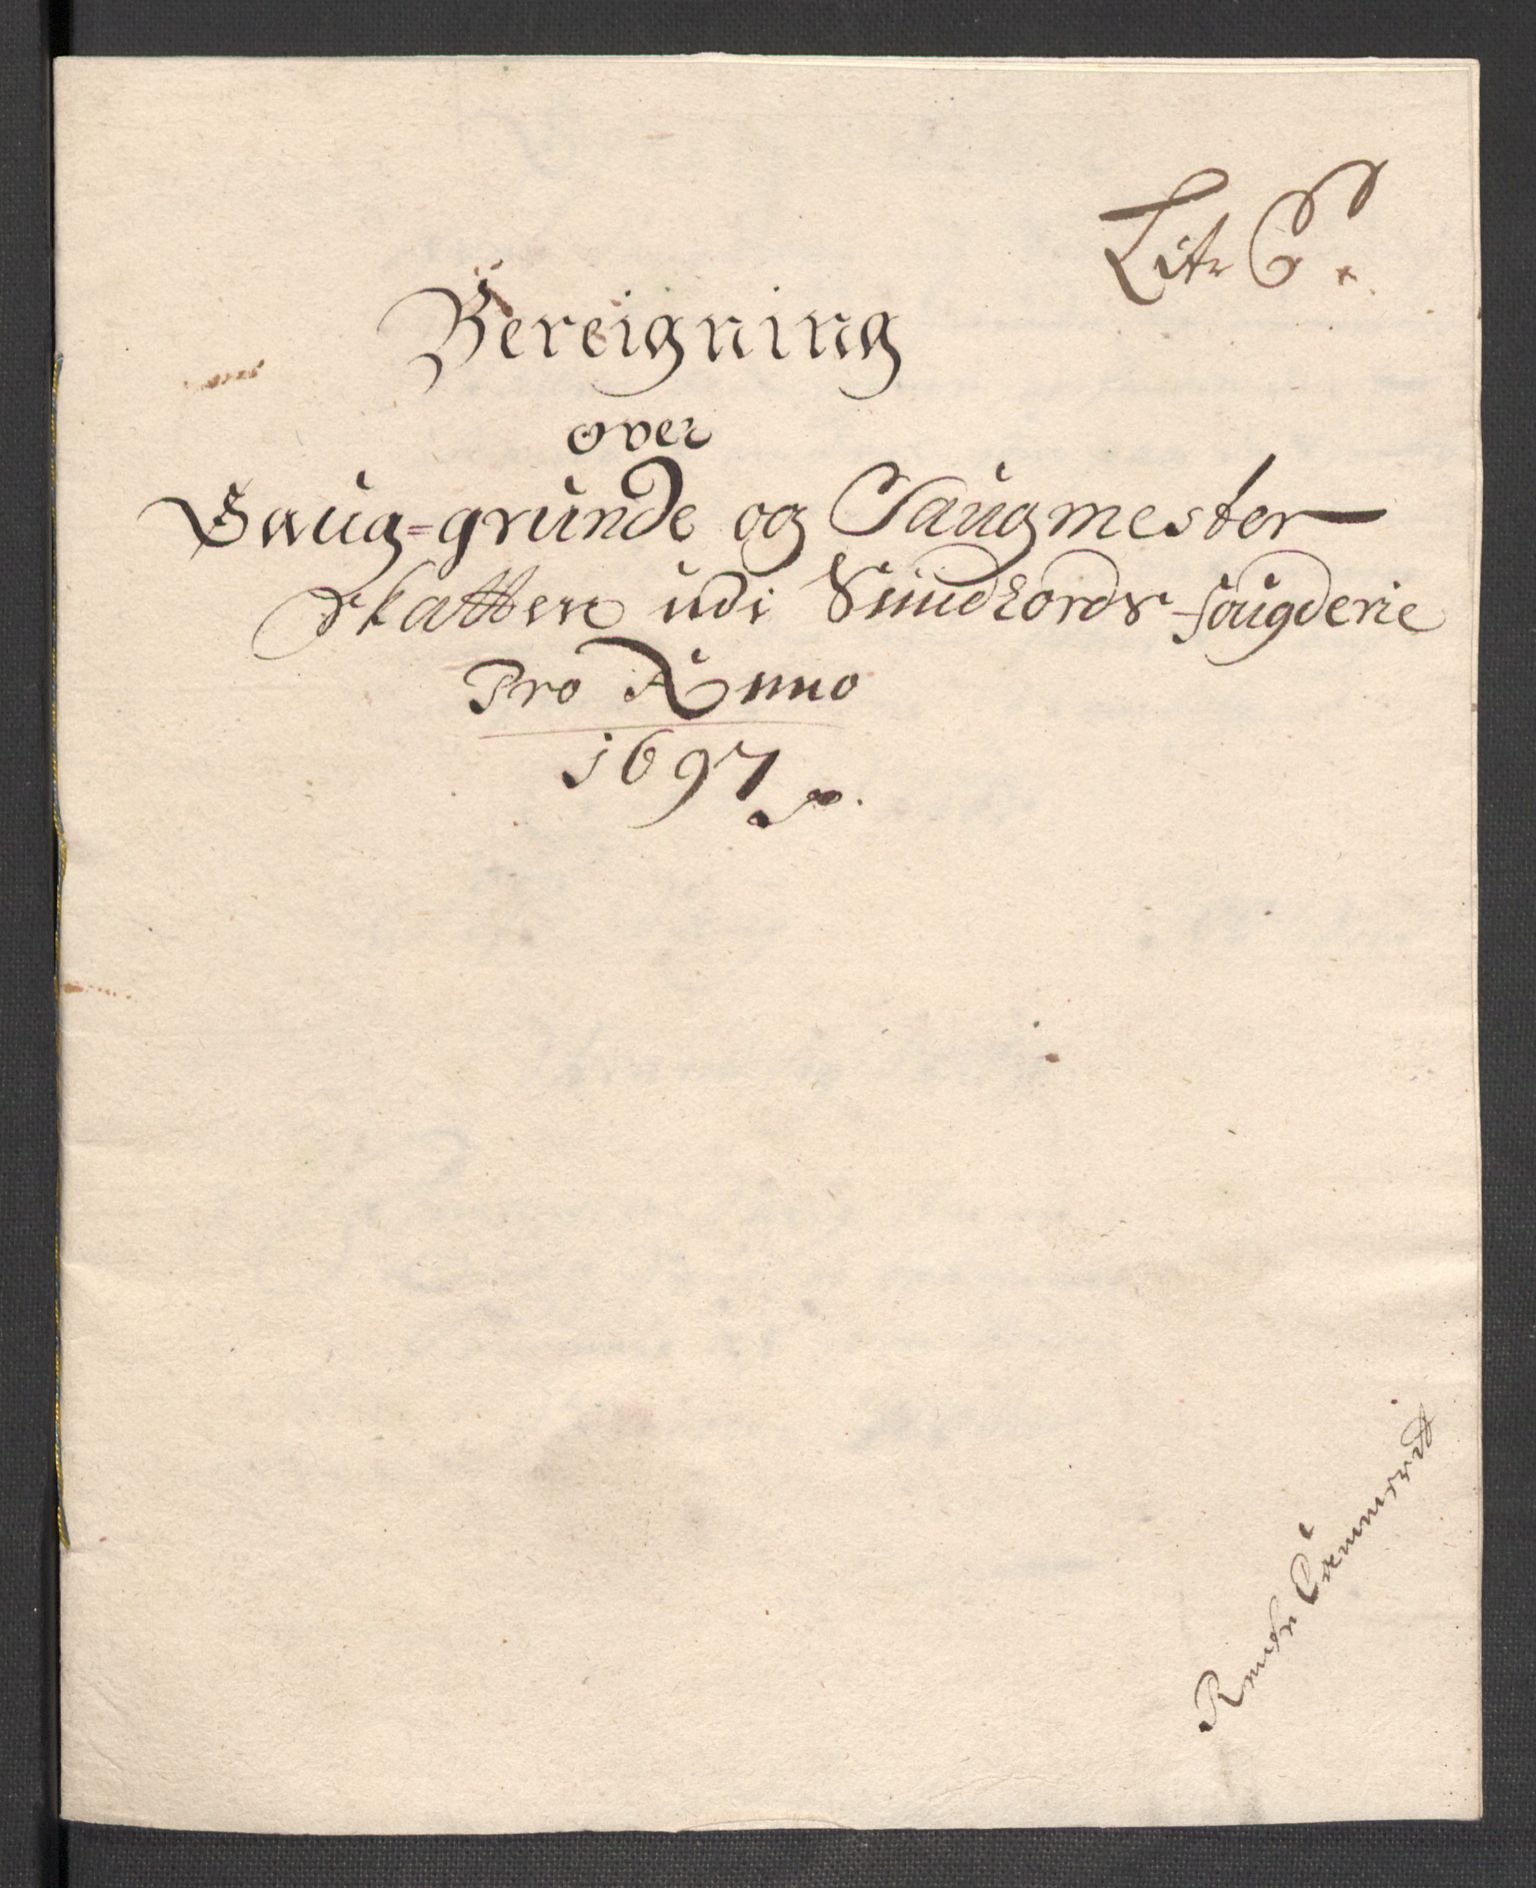 Litr C.
Bereigning
over
Saug-grunde og Saugmester
skatten udi Sundfords fougderie
Pro Anno
1697
Rente Cammeret